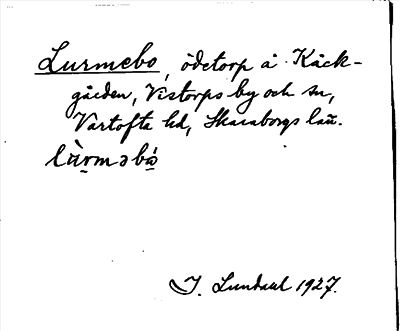 Lurmebo, ödetorp å Käck-
gården, Vistorps by och sn,
Vartofta hd, Skaraborgs län.
lùrməbò
I. Lundahl 1927.